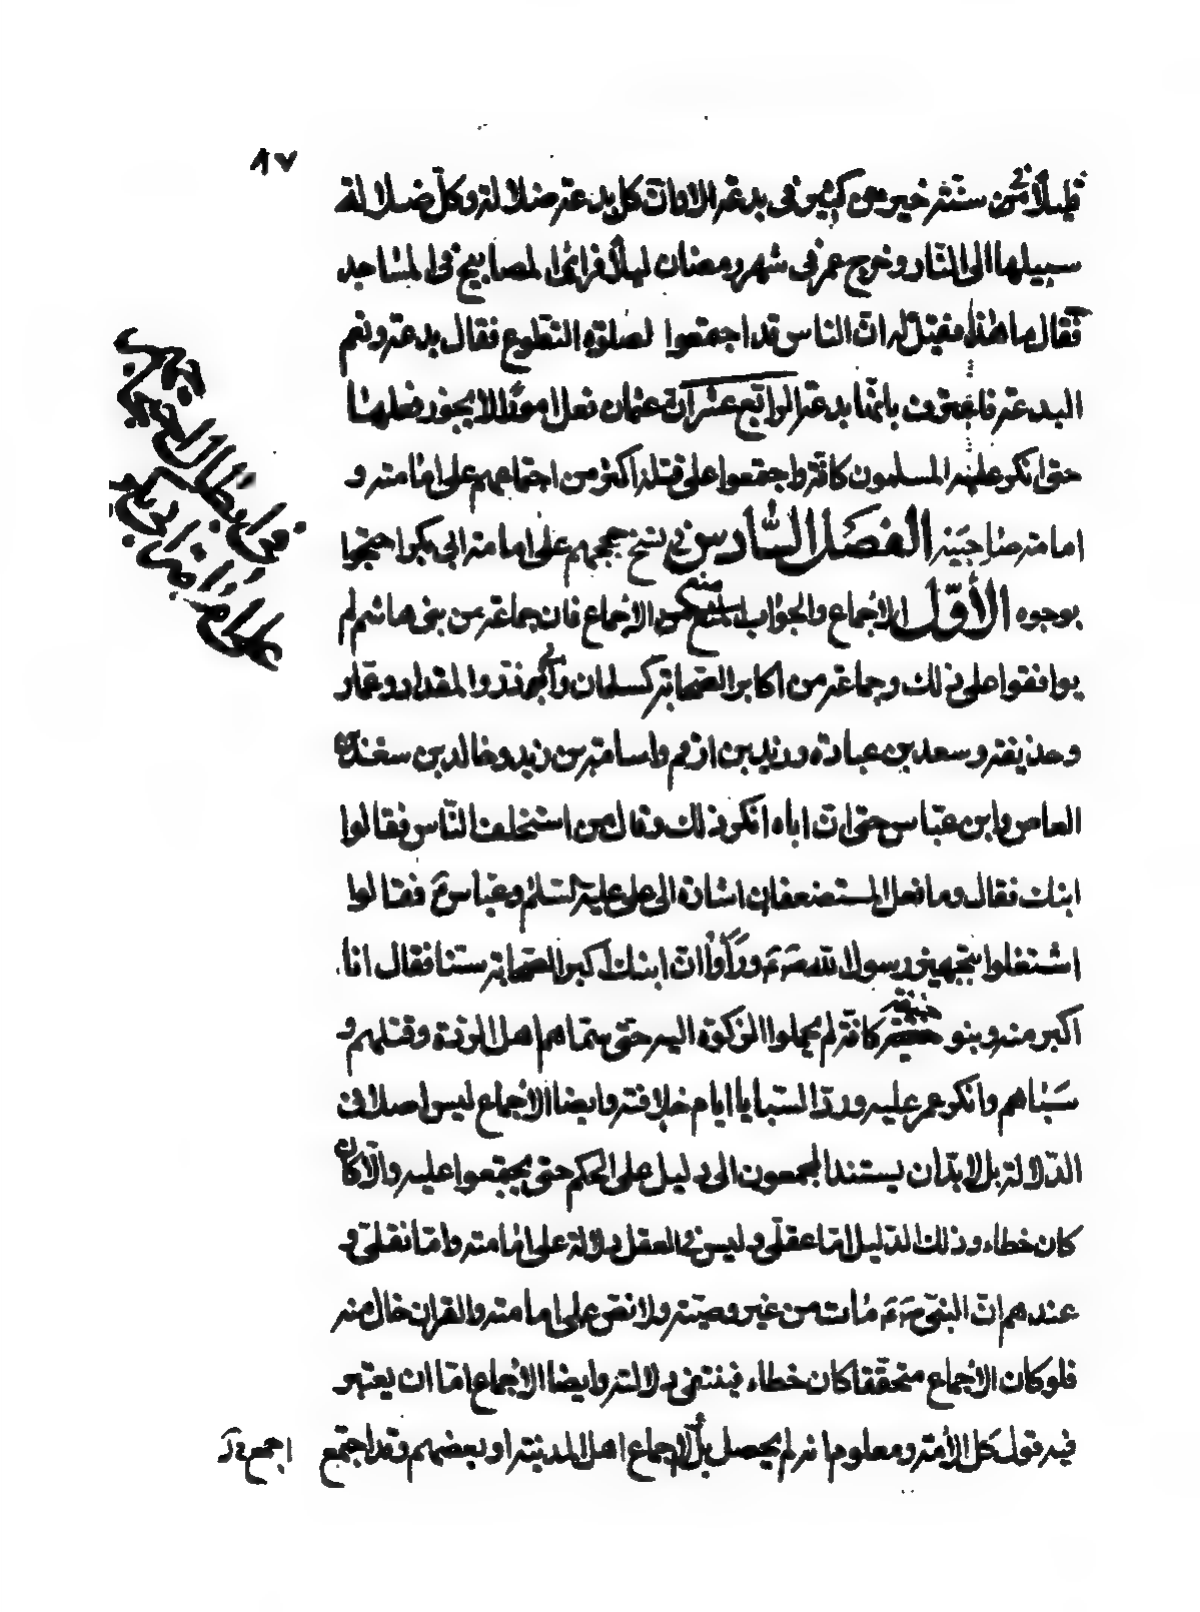 ٨٧
قليلا في سنة خير من كثير في بدعة الا وان كل بدعة ضلالة وكل ضلالة
سبيلها الى النار وخرج عمر في شهر رمضان ليلا فرائ المصابيح في المساجد
فقال ما هذا فقيل له ان الناس قد اجتمعوا لصلوة التطوع فقال بدعة ونعم
البدعة فاعترف بانها بدعة الرابع عشر ان عثمان فعل امورا لا يجوز فعلها
حتى انكر عليه المسلمون كافة واجتمعوا على قتله اكثر من اجتماعهم على امامته و
امامة صاحبيه الفصل السادس في نسخ حججهم على امامة ابي بكر احتجوا
بوجوه الأول الاجماع والجواب منع الاجماع فان جماعة من بني هاشم لم
يوافقوا على ذلك وجماعة من اكابر الصحابة كسلمان وابي ذر والمقداد وعمار
وحذيفة وسعد بن عبادة وزيد بن ارقم واسامة بن زيد وخالد بن سعيد بن
العاص وابن عباس حتى ان اباه انكر ذلك وقال من استخلف الناس فقالوا
ابنك فقال وما فعل المستضعفان اشارة الى على عليه السلم وعباس فقالوا
اشتغلوا بتجهيز رسول الله ص ورأوا ان ابنك اكبر الصحابة سنا فقال انا
اكبر منه وبنو حنيفة كافة لم يحملوا الزكوة اليه حتى سماهم اهل الردة وقتلهم و
سباهم وانكر عمر عليه ورد السبايا ايام خلافته وايضا الاجماع ليس اصلا في
الدلالة بل لابد ان يستند المجمعون الى دليل على الحكم حتى يجتمعوا عليه والا كان
كان خطاء وذلك الدليل اما عقلي وليس في العقل دلالة على امامته واما نقلي و
عندهم ان النبي ص مات من غير وصية ولا نص على امامته والقران خال منه
فلو كان الاجماع متحققا كان خطاء فينتفي دلالته وايضا الاجماع اما ان يعتبر
فيه قول كل الأمة ومعلوم انه لم يحصل بل ولا اجماع اهل المدينة او بعضهم وقد اجتمع
اجمع
في ابطال الحجج
على امامة ابي بكر